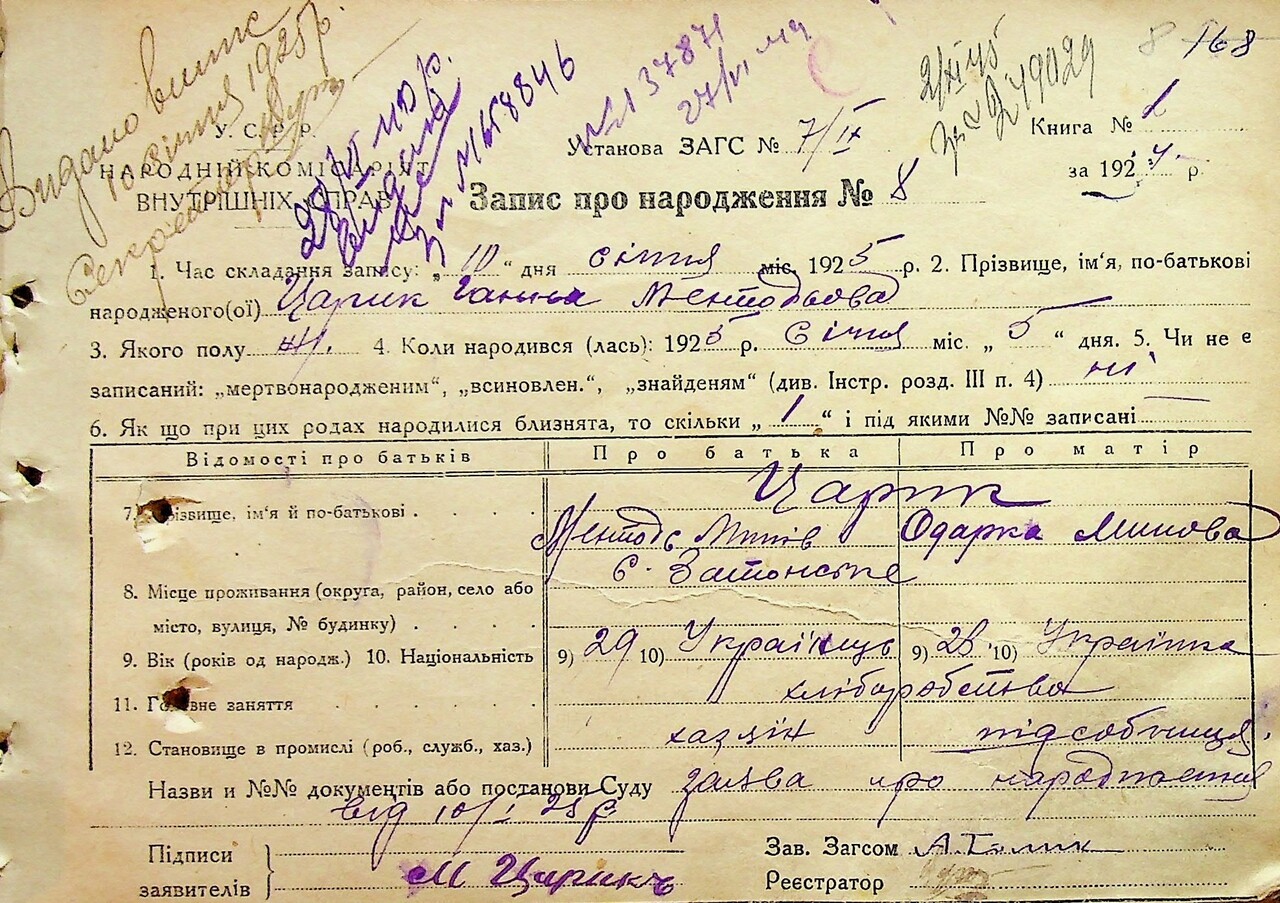 8 168
Видано випис
10 січня 1925 р.
Секретар
28/VI
видана
№ 658846
№ 37871
27/VI
2/XI 45
49029
У. С. Р. Р.
НАРОДНІЙ КОМІСАРІЯТ
ВНУТРІШНІХ СПРАВ
Установа ЗАГС № 7/ІХ
Книга № 1
за 192 р.
Запис про народження № 8
1. Час складання запису: „ 10 “ дня січня міс. 1925 р. 2. Прізвище, ім'я, по-батькові
народженого(ої) Царик Ганна Ментодьова
3. Якого полу ж. 4. Коли народився (лась): 1925 р. Січня міс. „ 5 “ дня. 5. Чи не є
записаний: „мертвонародженим“, „всиновлен.“, „знайденям“ (див. Інстр. розд. III п. 4) ні
6. Як що при цих родах народилися близнята, то скільки „ 1 “ і під якими №№ записані
Відомості про батьків Про батька Про матір
Царик
7. Прізвище, ім'я й по-батькові Ментодь Одарка
8. Місце проживання (округа, район, село або с. Затонське
місто, вулиця, № будинку)
9. Вік (років од народж.) 10. Національність 9) 29 10) Українець 9) 28 10) Українка
11. Головне заняття хліборобства
12. Становище в промислі (роб., служб., хаз.) хазяїн підсобниця
Назви и №№ документів або постанови Суду заява про народження
від 10/I 25 р
Підписи
заявителів М Царикъ
Зав. Загсом
Реєстратор